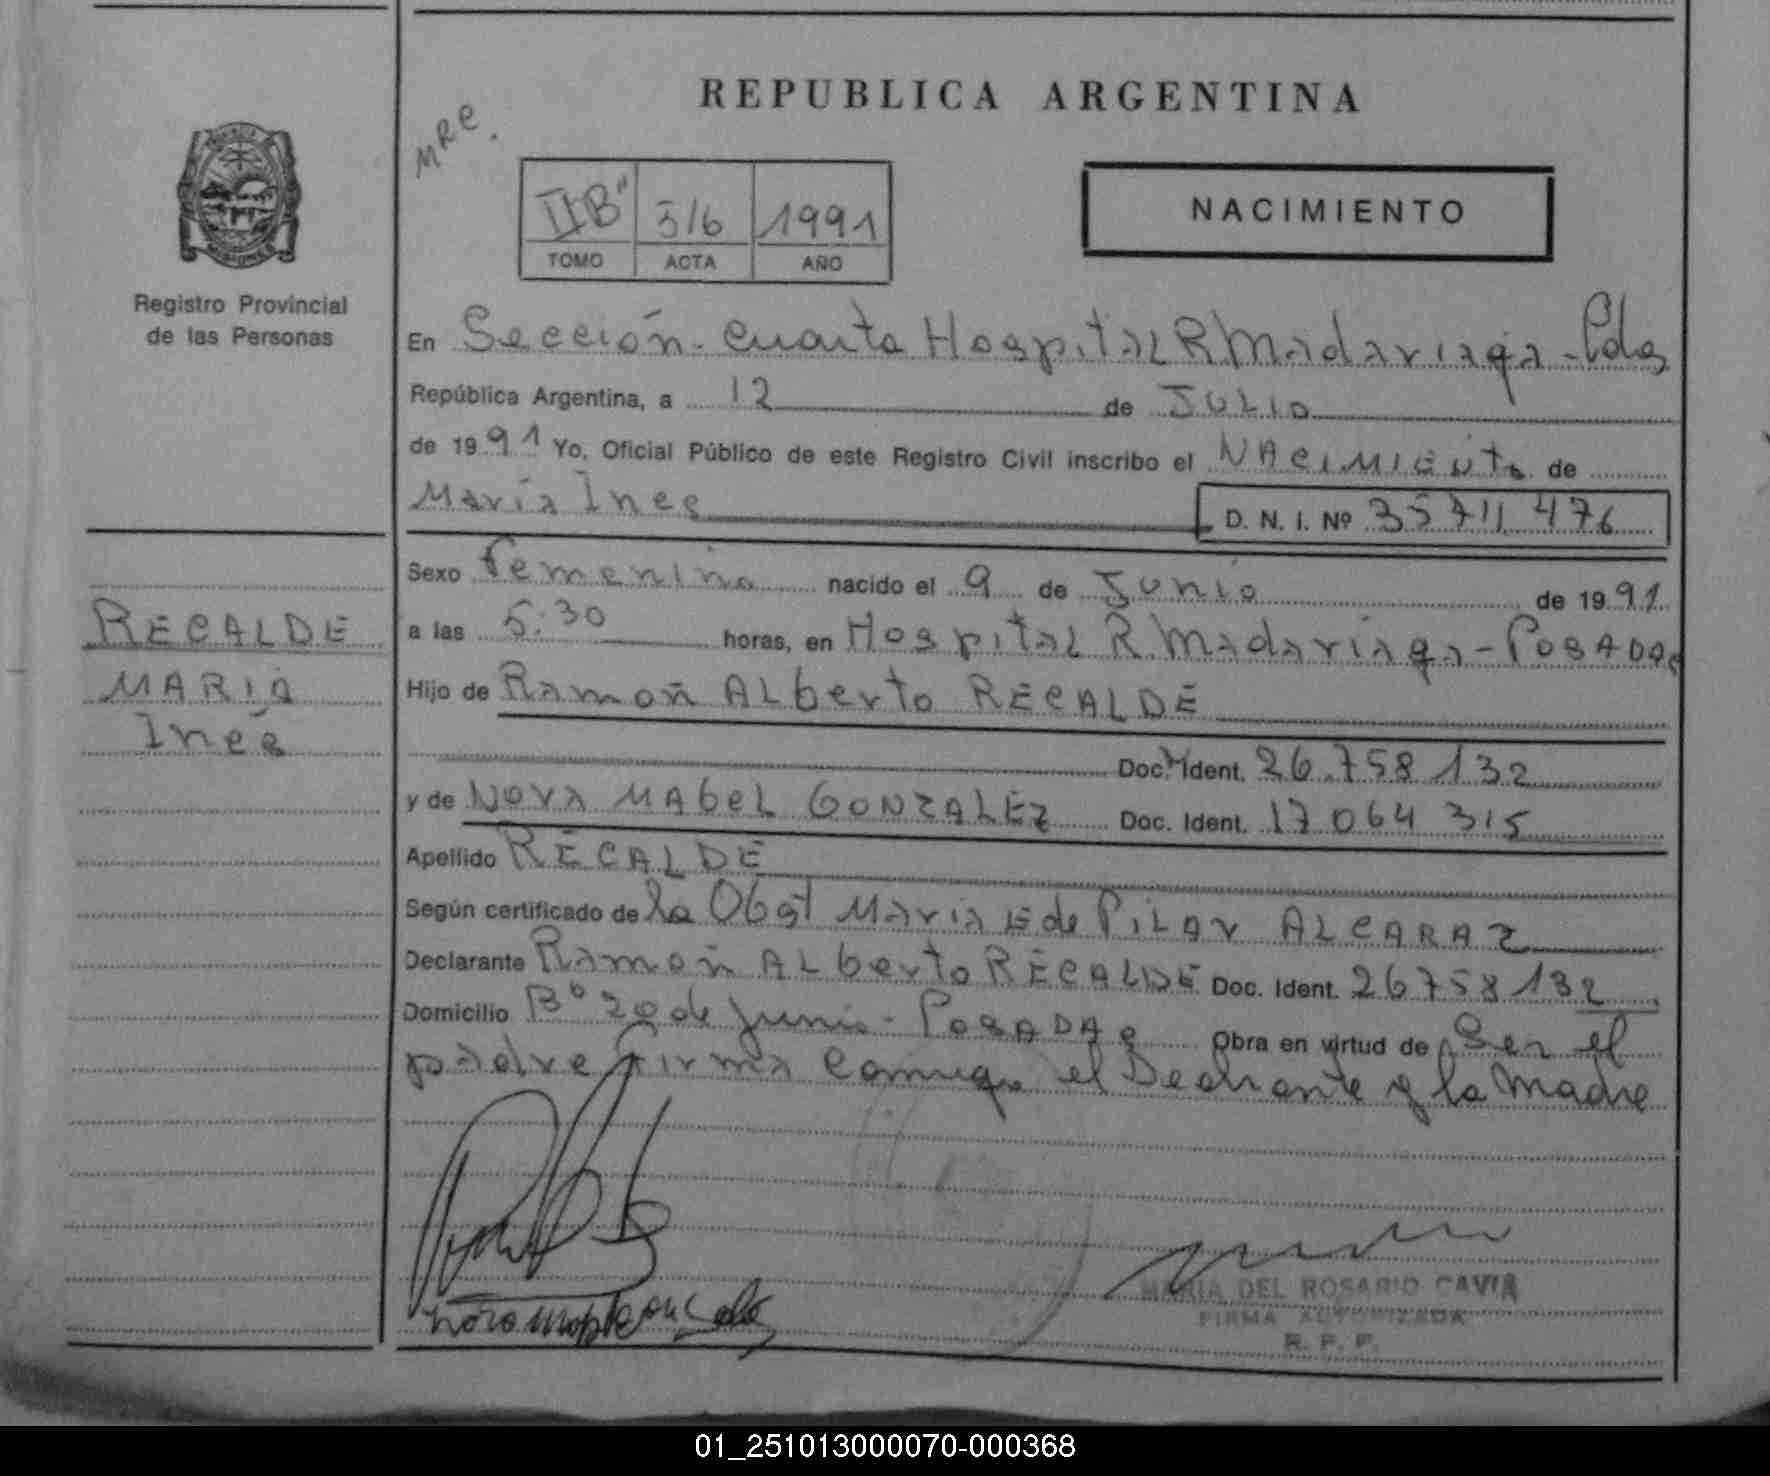 REPUBLICA ARGENTINA
MRC.
NACIMIENTO
II "B" 516 1991
TOMO ACTA AÑO
Registro Provincial
de las Personas
En Sección Cuarta Hospital R Madariaga - Pdas
República Argentina, a 12 de JULIO
de 1991 Yo, Oficial Público de este Registro Civil inscribo el NACIMIENTO de
María Ines D. N. I. Nº 35 711 476
Sexo Femenino nacido el 9 de Junio de 1991
a las 5:30 horas, en Hospital R. Madariaga - POSADAS
Hijo de Ramón ALberto RECALDE
Doc. Ident. 26.758 132
y de NOrA MAbeL GONZALEZ Doc. Ident. 17 064 315
Apellido RECALDE
Según certificado de la Obst María E de PiLAr ALCARAZ
Declarante Ramón ALberto RECALDE Doc. Ident. 26758132
Domicilio Bº 20 de Junio - POSADAS Obra en virtud de Ser el
padre Firma Conmigo el Declarante y la Madre
RECALDE
MARIA
Inés
MARIA DEL ROSARIO CAVIA
FIRMA AUTORIZADA
R. P. P.
01_251013000070-000368